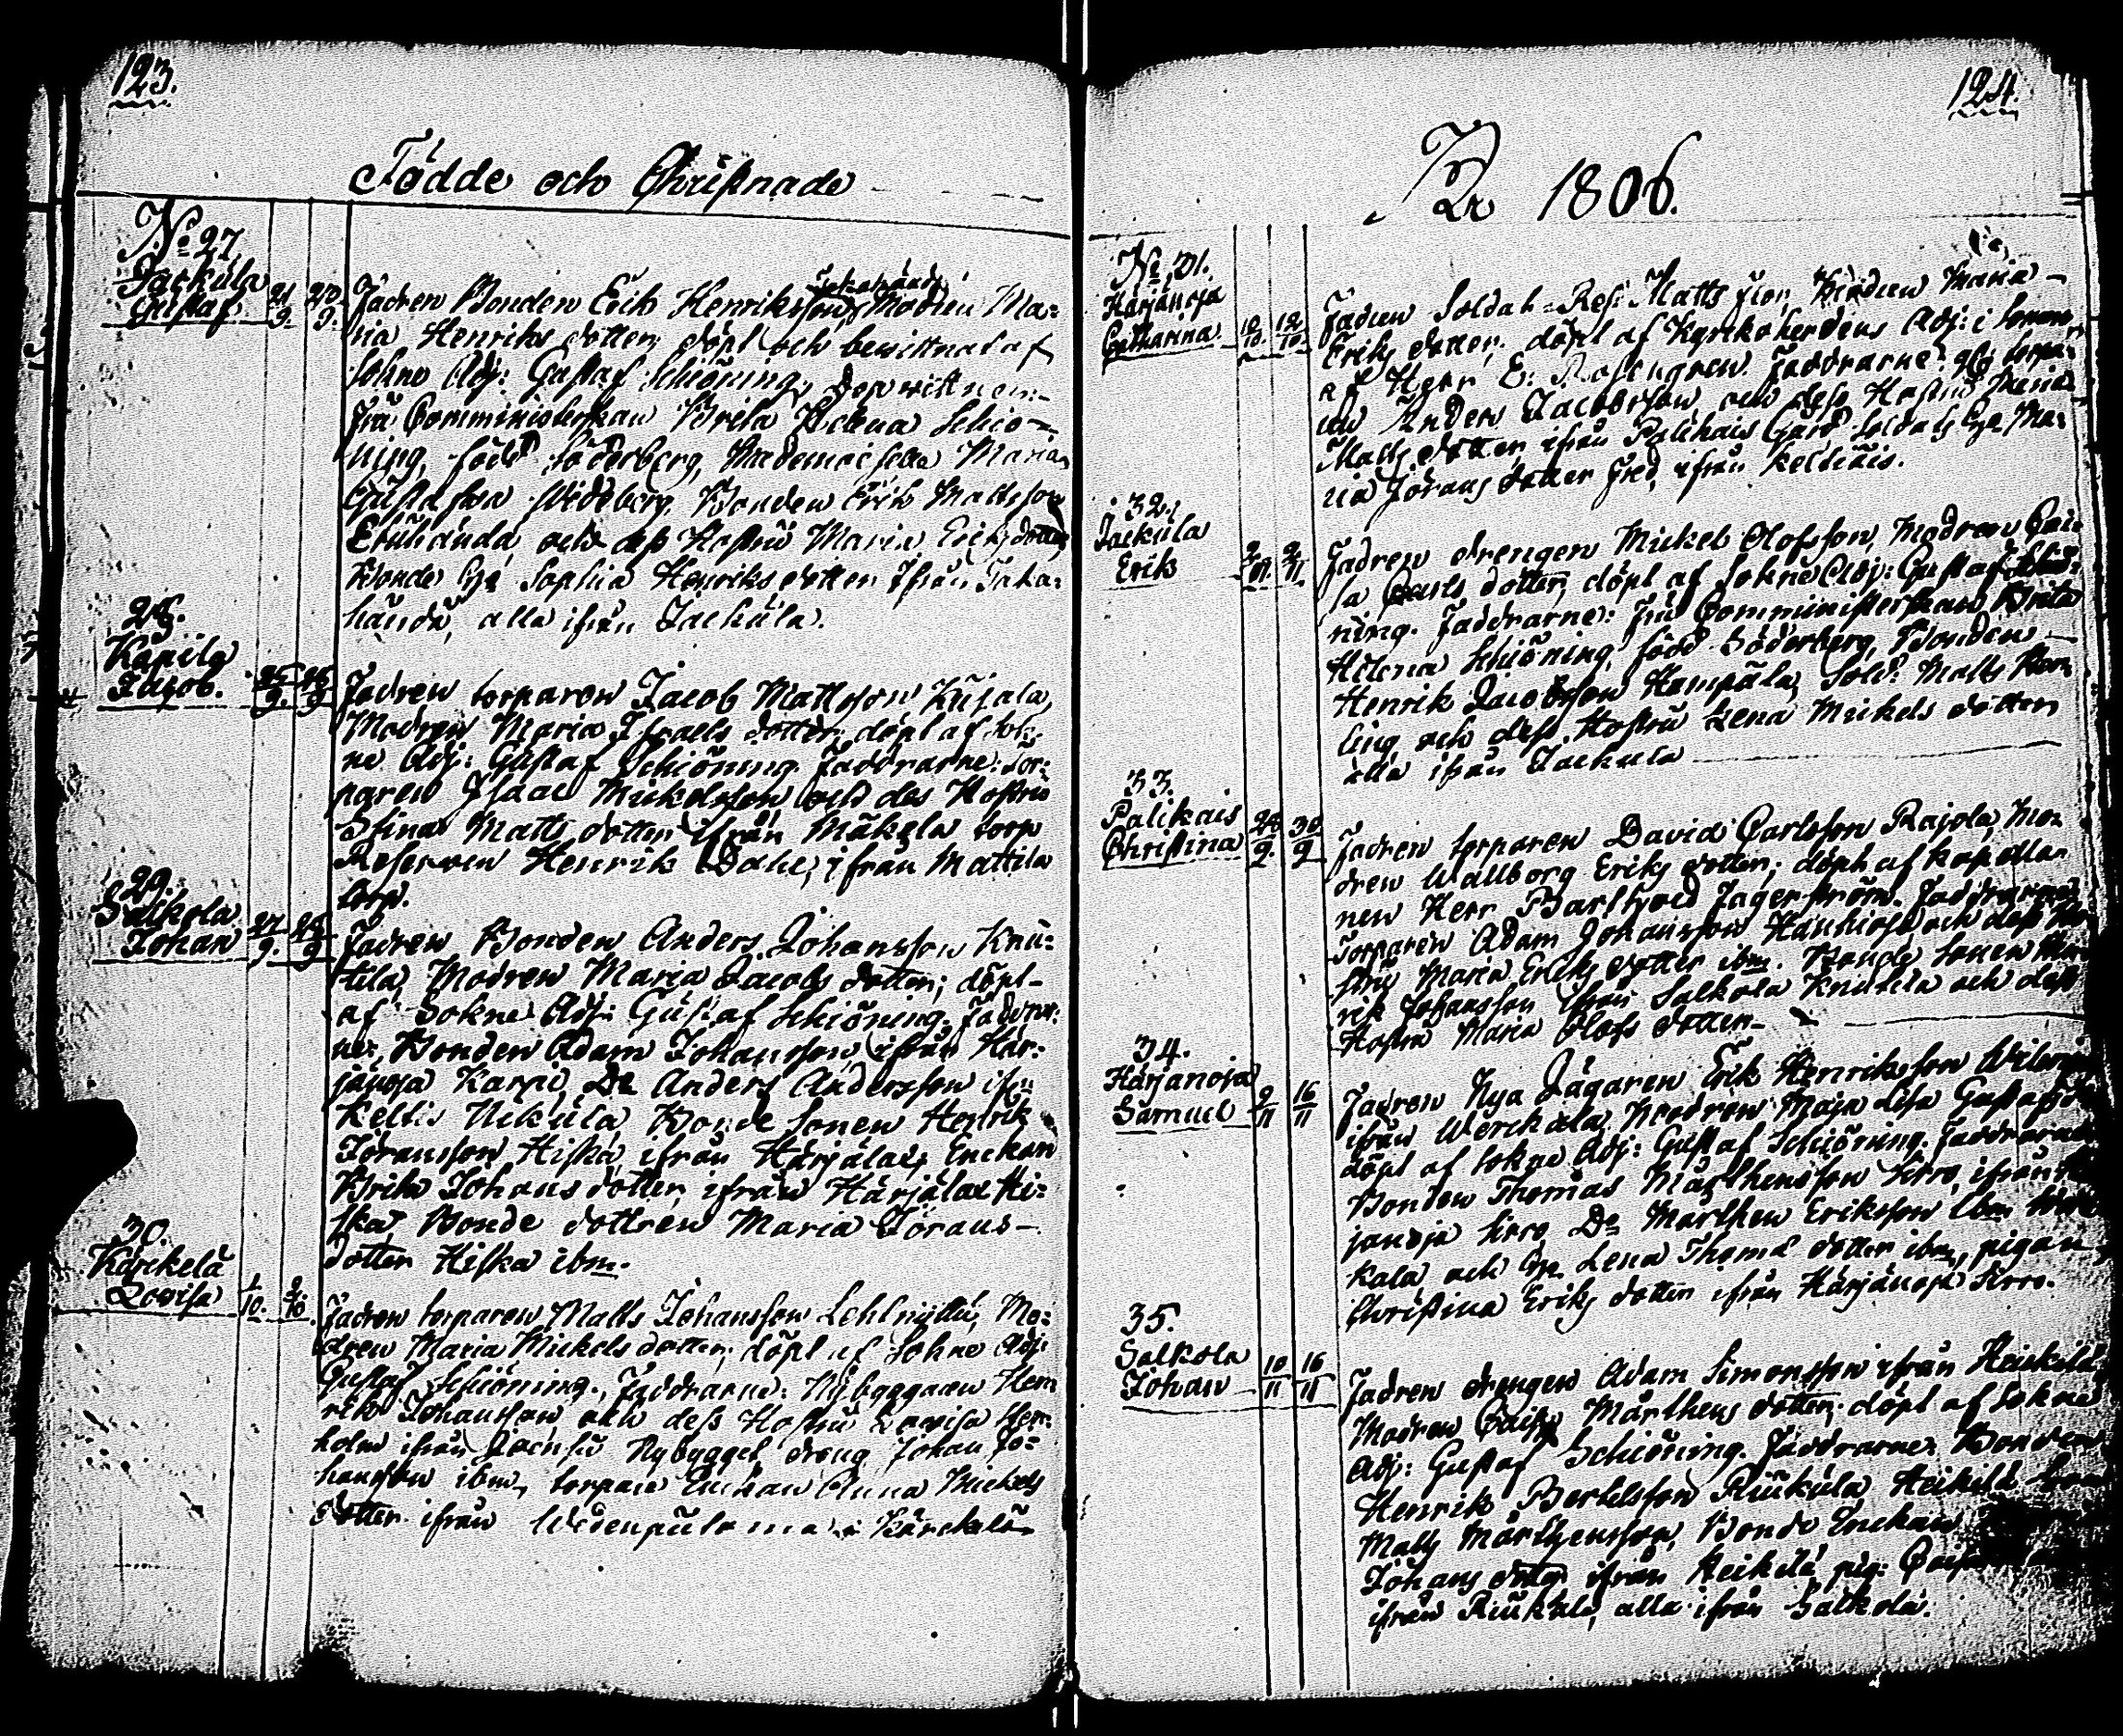 123.
Födde och Christnade
No 27
Jackula
Gustaf
21/9. 23/9.
Fadren Bonden Erik Henriksson Modren Ma-
ria Henriks dotter döpt och bewittnat af
Sokne Adj: Gustaf Schiöning, dopwittnen:
Fru Comministerskan Brita Helena Schiö-
ning, född Söderberg, Mademoiselle Maria
Gustafva Wideberg, Bonden Erik Mattsson
Etuhända och dess Hustru Maria Eriksdotter
Bonde Hu Sophia Henriks dotter ifrån Taka-
händä, alla ifrån Jackula.
28.
Kapila
Jacob.
Fadren torparen Jacob Mattsson Kujala,
Modren Maria Israels dotter, döpt af Sok-
ne Adj: Gustaf Schiöning. Faddrarne: Tor-
paren Isaac Mickelsson och des Hustru
Stina Matts dotter ifrån Mäkelä torp
Reserven Henrik Dahl, ifrån Mattila
torp.
29.
Salkola
Johan
27/9. 28/9
Fadren Bonden Anders Johansson Knu-
tila, Modren Maria Jacobs dotter; döpt
af Sokne Adj: Gustaf Schiöning. Faddrar-
ne, Bonden Adam Johansson ifrån Här-
jänoja Karpi, Do Anders Andersson ifrn
Keltis Uckula Bonde Sonen Henrik
Göransson Hiska ifrån Härjälax, Enckan
Brita Johans dotter ifrån Härjälax Hi-
ska Bonde dottren Maria Görans-
dotter Hiska ibm.
30.
Kärckelä
Lovisa
1/10. 2/10.
Fadren torparen Matts Johansson Lehlnyttu, Mo-
dren Maria Mickels dotter, döpt af Sokne Adj:
Gustaf Schiöning., Faddrarne: Nybyggaren Hen-
rik Johansson och dess Hustru Lovisa Her-
holm ifrån Nybygget, dräng Johan Jo-
hansson ibm, torpare Enckan Anna Mickels
dotter ifrån Kärckelä
124.
År 1806.
No 31.
Härjänoja
Catharina
10/10. 12/10.
Fadren Soldat Res: Matts Fior, Modren Maria
Eriks dotter, döpt af Kyrkoherdens Adj: i
af Herr E: Rosengren. Faddrarne: torpa-
ren Anders Jacobsson och dess Hustru Maria
Matts dotter ifrån Palikais Gård Soldats Hu Ma-
ria Jörans dotter Fred, ifrån Keltiäis.
32.
Jackula
Erik
Fadren drengen Mickel Olofsson, Modren Cai-
sa Carls dotter, döpt af Sokne Adj: Gustaf Schiö-
ning. Faddrarne: Fru Comministerskan Brita
Helena Schiöning, född Söderberg, Bonden
Henrik Jacobsson Hampäla, Sold: Matts
ling och dess Hustru Lena Mickels dotter
alla ifrån Jackula
33.
Palikais
Christina
28/9. 30/9
Fadren torparen David Carlsson Rajola, Mo-
dren Wallborg Eriks dotter; döpt af kapella-
nen Herr Barthold Jagerström. Faddrarne,
Torparen Adam Johansson Hauhioja och dess Hu-
stru Maria Eriks dotter ibm. Bonde Sonen Hen-
rik Johansson ifrån Salkola Knutila och dess
Hustru Maria Olofs dotter
34.
Härjänoja
Samuel
9/11 16/11
Fadren Nya Jägaren Erik Henriksson
ifrån Werckala, Modren Maja Lisa Gustafsdr
döpt af Sokne Adj: Gustaf Schiöning. Faddrarne
Bonden Thomas Mårthensson Sirro, ifrån Här-
janoja Sirro, Do Marthen Eriksson ibm
kala och Hu Lena Thomæ dotter ibm, pigan
Christina Eriks dotter ifrån Härjänoja Sirro.
35.
Salkola
Johan
10/11 16/11
Fadren drengen Adam Simonsson ifrån Heickilä
Modren Caisa Mårthens dotter; döpt af Sokne
Adj: Gustaf Schiöning. Faddrarne Bonden
Henrik Bertelsson Riukula Heikilä
Matts Mårthensson, Bonde Enckan
Johans dotter ifrån Heikilä pig: Caisa
ifrån Riukula, alla ifrån Salkola.